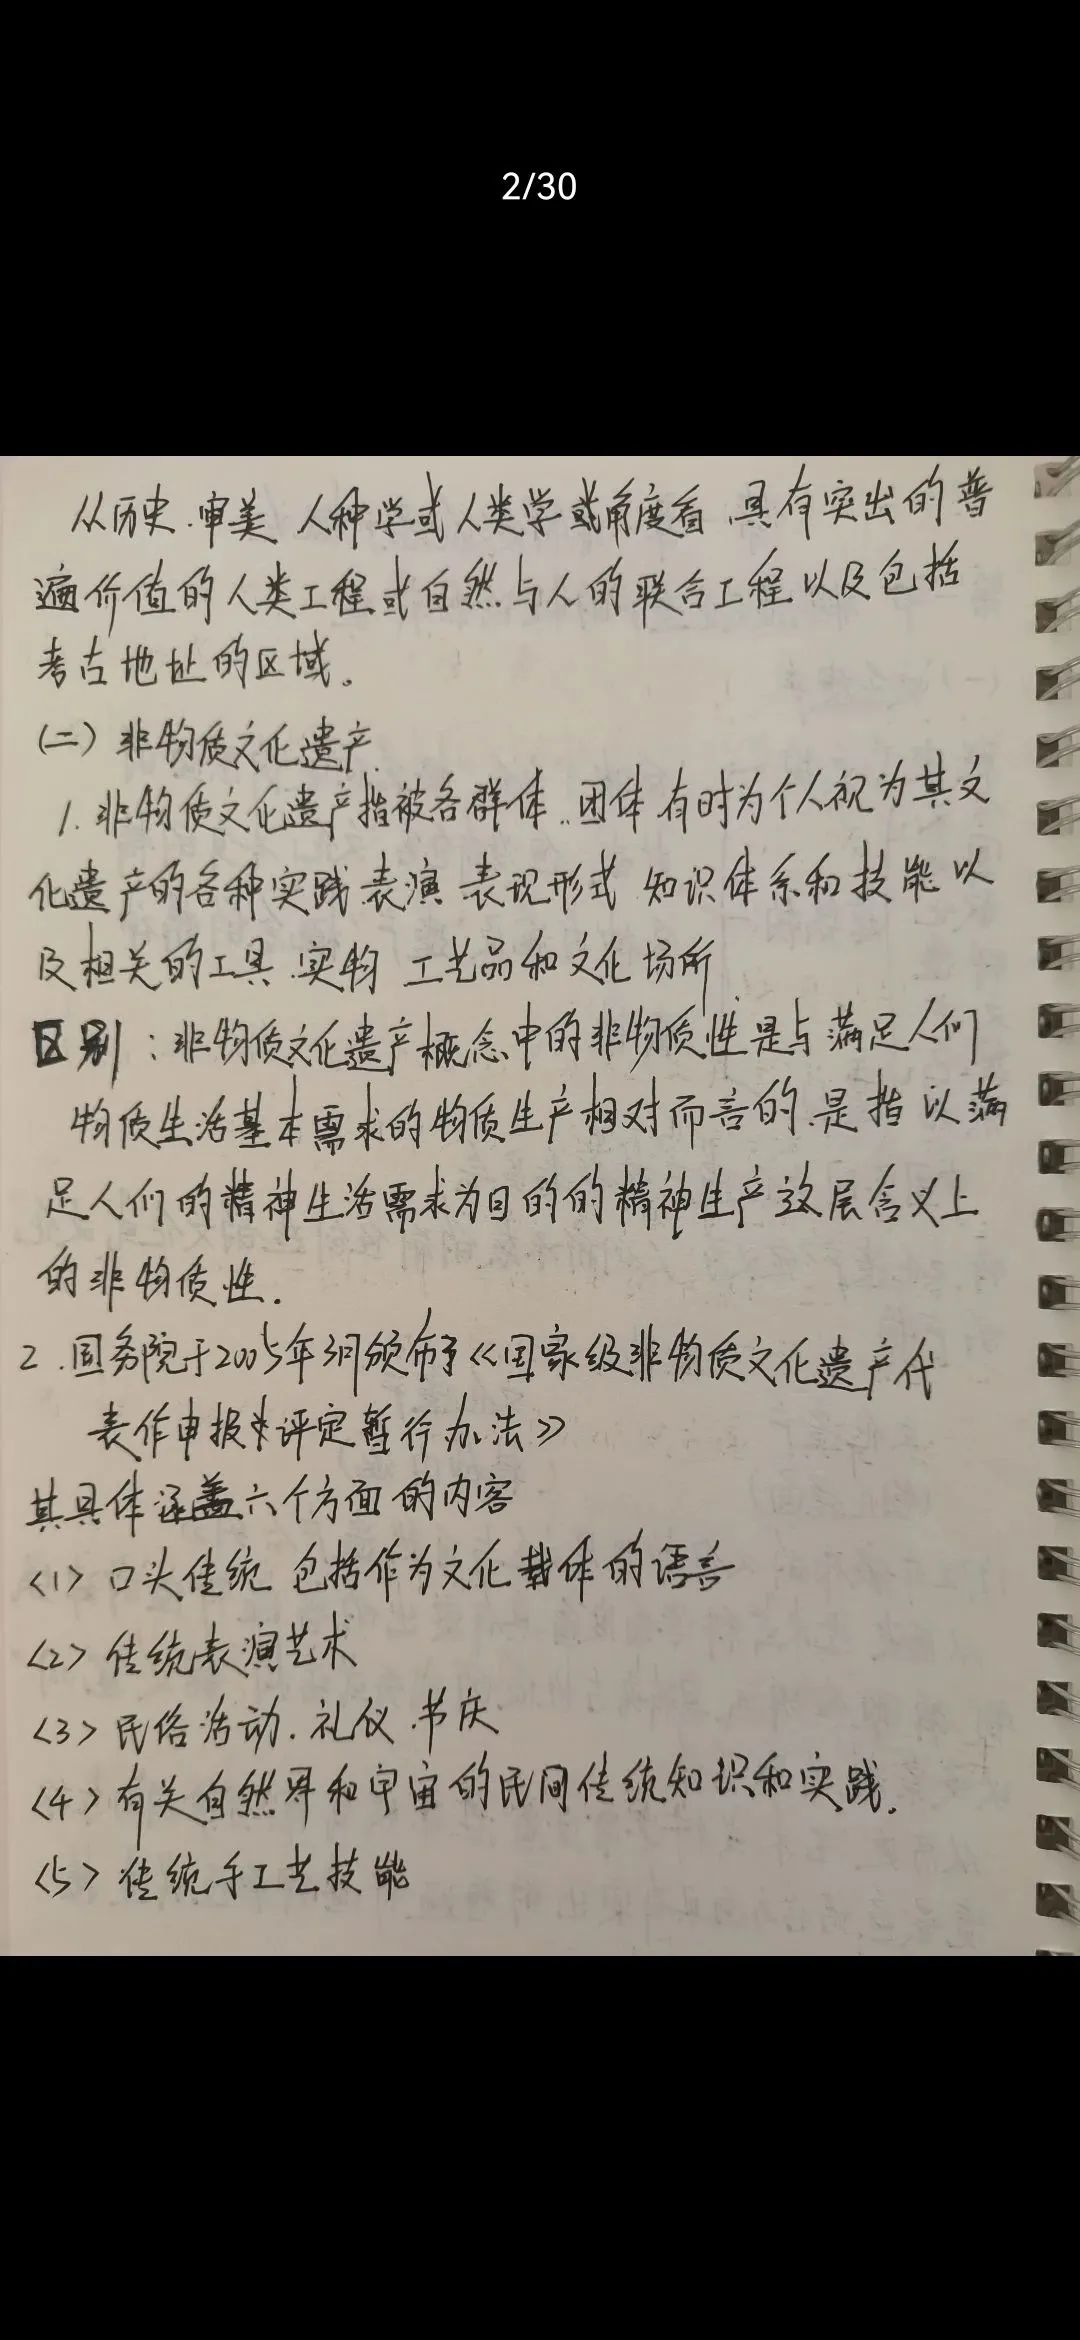 2/30
从历史、审美 人种学或人类学或角度看 具有突出的普
遍价值的人类工程或自然与人的联合工程以及包括
考古地址的区域。
(二) 非物质文化遗产.
1. 非物质文化遗产指被各群体..团体 有时为个人视为其文
化遗产的各种实践.表演 表现形式 知识体系和技能以
及相关的工具.实物 工艺品和文化场所
区别：非物质文化遗产概念中的非物质性是与满足人们
物质生活基本需求的物质生产相对而言的.是指以满
足人们的精神生活需求为目的的精神生产这层含义上
的非物质性.
2.国务院于2005年3月颁布了《国家级非物质文化遗产代
表作申报评定暂行办法》
其具体涵盖六个方面的内容
<1> 口头传统 包括作为文化载体的语言
<2> 传统表演艺术
<3> 民俗活动.礼仪.节庆
<4> 有关自然界和宇宙的民间传统知识和实践.
<5> 传统手工艺技能